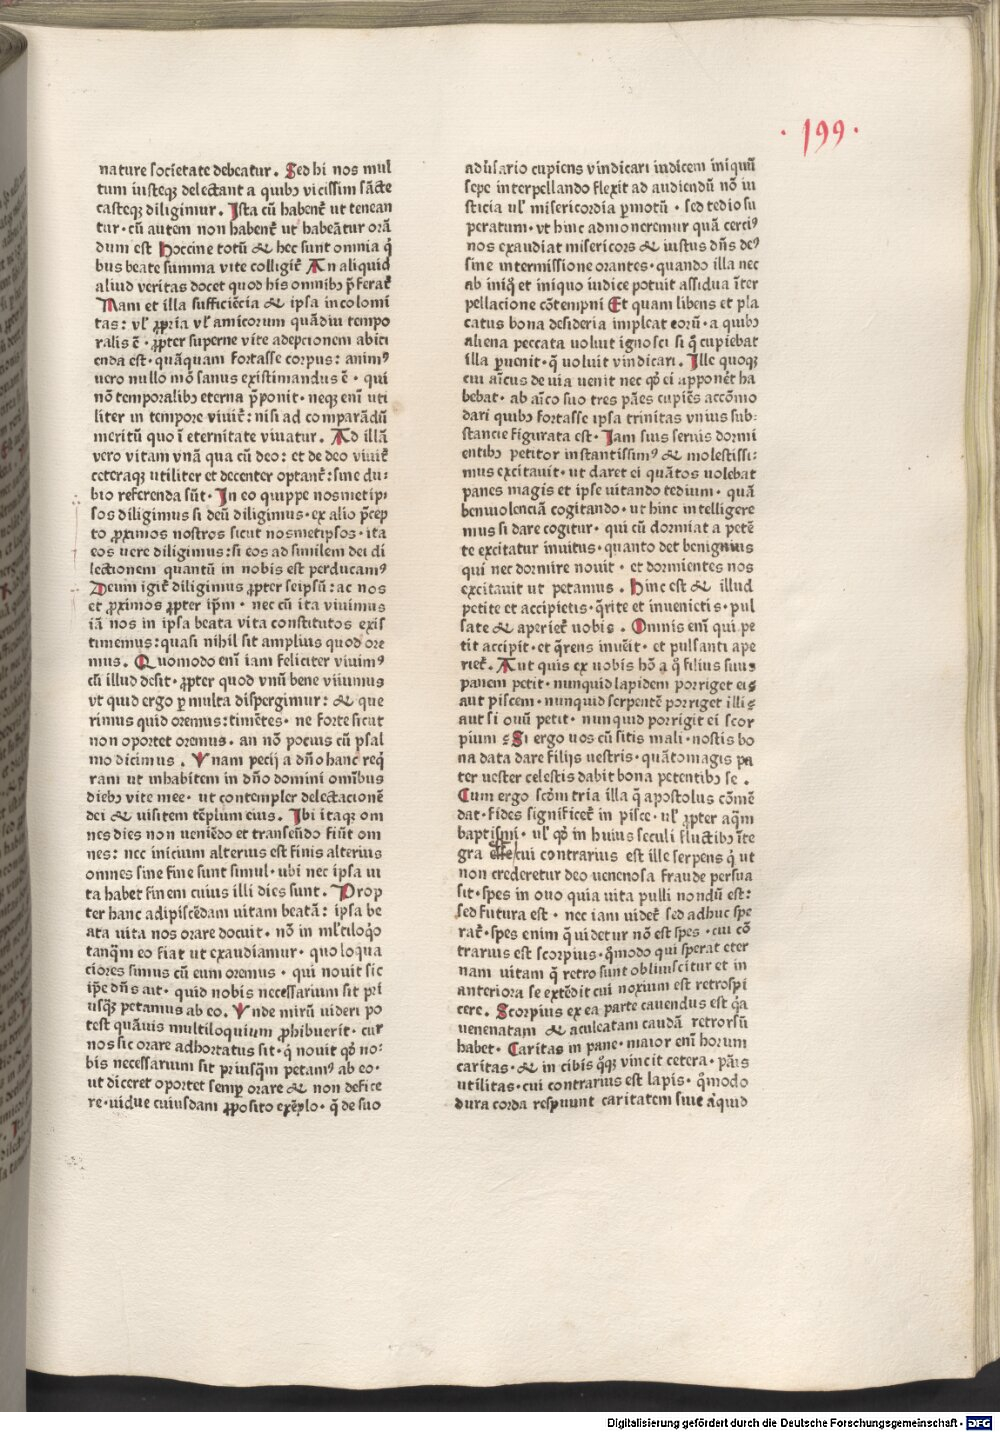 · 199 ·
nature societate debeatur . Sed hi nos mul
tum iusteqꝫ delectant a quibꝰ vicissim sācte
casteqꝫ diligimur . Ista cū habent̄ ut tenean
tur · cū autem non habent̄ ut habeātur orā
dum est Hoccine totū & hec sunt omnia q̄
bus beate summa vite colligit̄ An aliquid
aliud veritas docet quod his omnibꝰ p̄ferat̄
Nam et illa sufficiēcia & ipsa incolomi
tas : vl̄ ꝓpria vl̄ amicorum quādiu tempo
ralis ē · ꝓpter superne vite adepcionem abici
enda est · quāquam fortasse corpus : animꝰ
uero nullo mō sanus existimandus ē · qui
nō temporalibꝰ eterna p̄ponit · neqꝫ enī uti
liter in tempore vivit̄ : nisi ad comparādū
meritū quo ī eternitate vivatur . Ad illā
vero vitam vnā qua cū deo : et de deo vivit̄
ceteraqꝫ utiliter et decenter optant̄ : sine du⸗
bio referenda sūt · In eo quippe nosmetip⸗
sos diligimus si deū diligimus · ex alio p̄cep
to ꝓximos nostros sicut nosmetipsos · ita
eos uere diligimus : si eos ad similem dei di
lectionem quantū in nobis est perducamꝰ
Deum igit̄ diligimus ꝓpter seipsū : ac nos
et ꝓximos ꝓpter ip̄m · nec cū ita vivimus
iā nos in ipsa beata vita constitutos exis
timemus : quasi nihil sit amplius quod ore
mus . Quomodo enī iam feliciter vivimꝰ
cū illud desit · ꝓpter quod vnū bene vivimus
vt quid ergo ꝑ multa dispergimur : & que
rimus quid oremus : timētes · ne forte sicut
non oportet oremus · an nō pocius cū psal
mo dicimus . Vnam pecij a dn̄o hanc req̄
ram ut inhabitem in dn̄o domini om̄ibus
diebꝰ vite mee · ut contempler delectacionē
dei & uisitem tēplum eius . Ibi itaqꝫ om
nes dies non ueniēdo et transeūdo fiūt om
nes : nec inicium alterius est finis alterius
omnes sine fine sunt simul · ubi nec ipsa ui
ta habet finem cuius illi dies sunt . Prop
ter hanc adipiscēdam uitam beatā : ipsa be
ata uita nos orare docuit · nō in ml̄tiloq̄o
tanq̄m eo fiat ut exaudiamur · quo loqua
ciores simus cū eum oremus · qui nouit sic
ip̄e dn̄s ait · quid nobis necessarium sit pri
usq̄ꝫ petamus ab eo . Vnde mirū uideri po
test quāuis multiloquium ꝓhibuerit · cur
nos sic orare adhortatus sit · q̄ nouit qꝙ no⸗
bis necessarium sit priusq̄m petamꝰ ab eo ·
ut diceret oportet semꝑ orare & non defice
re · uidue cuiusdam ꝓposito exēplo · q̄ de suo
aduꝰsario cupiens vindicari iudicem iniquū
sepe interpellando flexit ad audiendū nō iu
sticia ul̄ misericordia ꝑmotū · sed tedio su
peratum · vt hinc admoneremur quā certiꝰ
nos exaudiat misericors & iustus dn̄s deꝰ
sine intermissione orantes · quando illa nec
ab iniq̄ et iniquo iudice potuit assidua īter
pellacione cōtempni Et quam libens et pla
catus bona desideria impleat eorū · a quibꝰ
aliena peccata uoluit ignosci si q̄ cupiebat
illa ꝑuenit · q̄ uoluit vindicari . Ille quoqꝫ
cui aīcus de uia uenit nec qꝙ ei apponer̄t ha
bebat · ab aīco suo tres pāes cupiēs accōmo
dari quibꝰ fortasse ipsa trinitas vnius sub⸗
stancie figurata est · Iam suis seruis dormi
entibꝰ petitor instantissimꝰ & molestissi⸗
mus excitauit · ut daret ei quātos uolebat
panes magis et ipse uitando tedium · quā
beniuolenciā cogitando · ut hinc intelligere
mus si dare cogitur · qui cū dormiat a petē
te excitatur inuitus · quanto det benignius
qui nec dormire nouit · et dormientes nos
excitauit ut petamus . Hinc est & illud
petite et accipietis · q̄rite et inuenietis · pul
sate & aperiet̄ uobis . Omnis enī qui pe
tit accipit · et q̄rens inuēit · et pulsanti ape
riet̄ . Aut quis ex uobis hō a q̄ filius suus
panem petit · nunquid lapidem porriget ei ⸗
aut piscem · nunquid serpentē porriget illi ⸗
aut si ouū petit · nunquid porrigit ei scor
pium ⸗ Si ergo uos cū sitis mali · nostis bo
na data dare filijs uestris · quātomagis pa
ter uester celestis dabit bona petentibꝰ se .
Cum ergo scdm tria illa q̄ apostolus cōmē
dat · fides significet̄ in pisce · ul̄ ꝓpter aq̄m
baptismi · ul̄ qꝙ in huius seculi fluctibꝰ īte
gra esse cui contrarius est ille serpens q̄ ut
non crederetur deo uenenosa fraude persua
sit · spes in ouo quia uita pulli nondū est :
sed futura est · nec iam uidet̄ sed adhuc spe
rat̄ · spes enim q̄ uidetur nō est spes · cui cō
trarius est scorpius · q̄modo qui sperat eter
nam uitam q̄ retro sunt obliuiscitur et in
anteriora se extēdit cui noxium est retrospi
cere . Scorpius ex ea parte cauendus est q̄a
uenenatam & aculeatam caudā retrorsū
habet · Caritas in pane · maior enī horum
caritas · & in cibis q̄qꝫ vincit cetera · pāis
utilitas · cui contrarius est lapis · q̄modo
dura corda respuunt caritatem siue aliquid
Digitalisierung gefördert durch die Deutsche Forschungsgemeinschaft - DFG